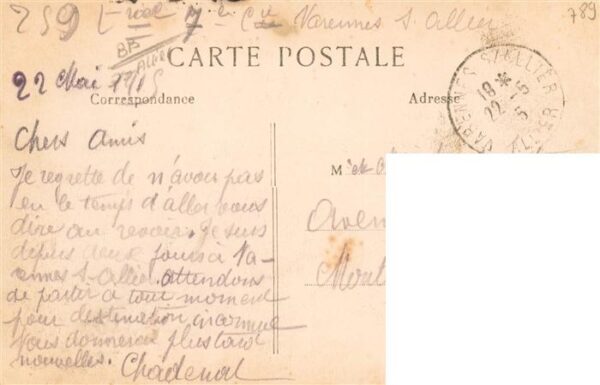 789
7e Cie Varennes s. Allier
CARTE POSTALE
22 Mai 1915
Correspondance
Adresse
VARENNES S/ALLIER
18 *
22 - 5
15
ALLIER
Chers Amis
M
Je regrette de n'avoir pas
eu le temps d'aller vous
Aven
dire au revoir. Je suis
depuis deux jours à Va-
Mont
rennes s-Allier attendons
de partir à tout moment
pour destination inconnue
Vous donnerai plus tard
nouvelles. Chadenat